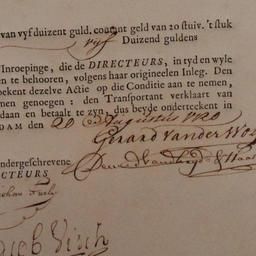 van vyf duizent guld. courant geld van 20 stuiv. 't stuk
vyf Duizend guldens
Inroepinge, die de DIRECTEURS, in tyd en wyle
en te behooren, volgens haar origineelen Inleg. Den
bekent dezelve Actie op die Conditie aan te nemen,
nen genoegen: den Transportant verklaart van
daan en betaalt te zyn, dus beyde onderteekent in
DAM den 20 Augustus 1720
Gerard Vander
ndergeschrevene
CTEURS